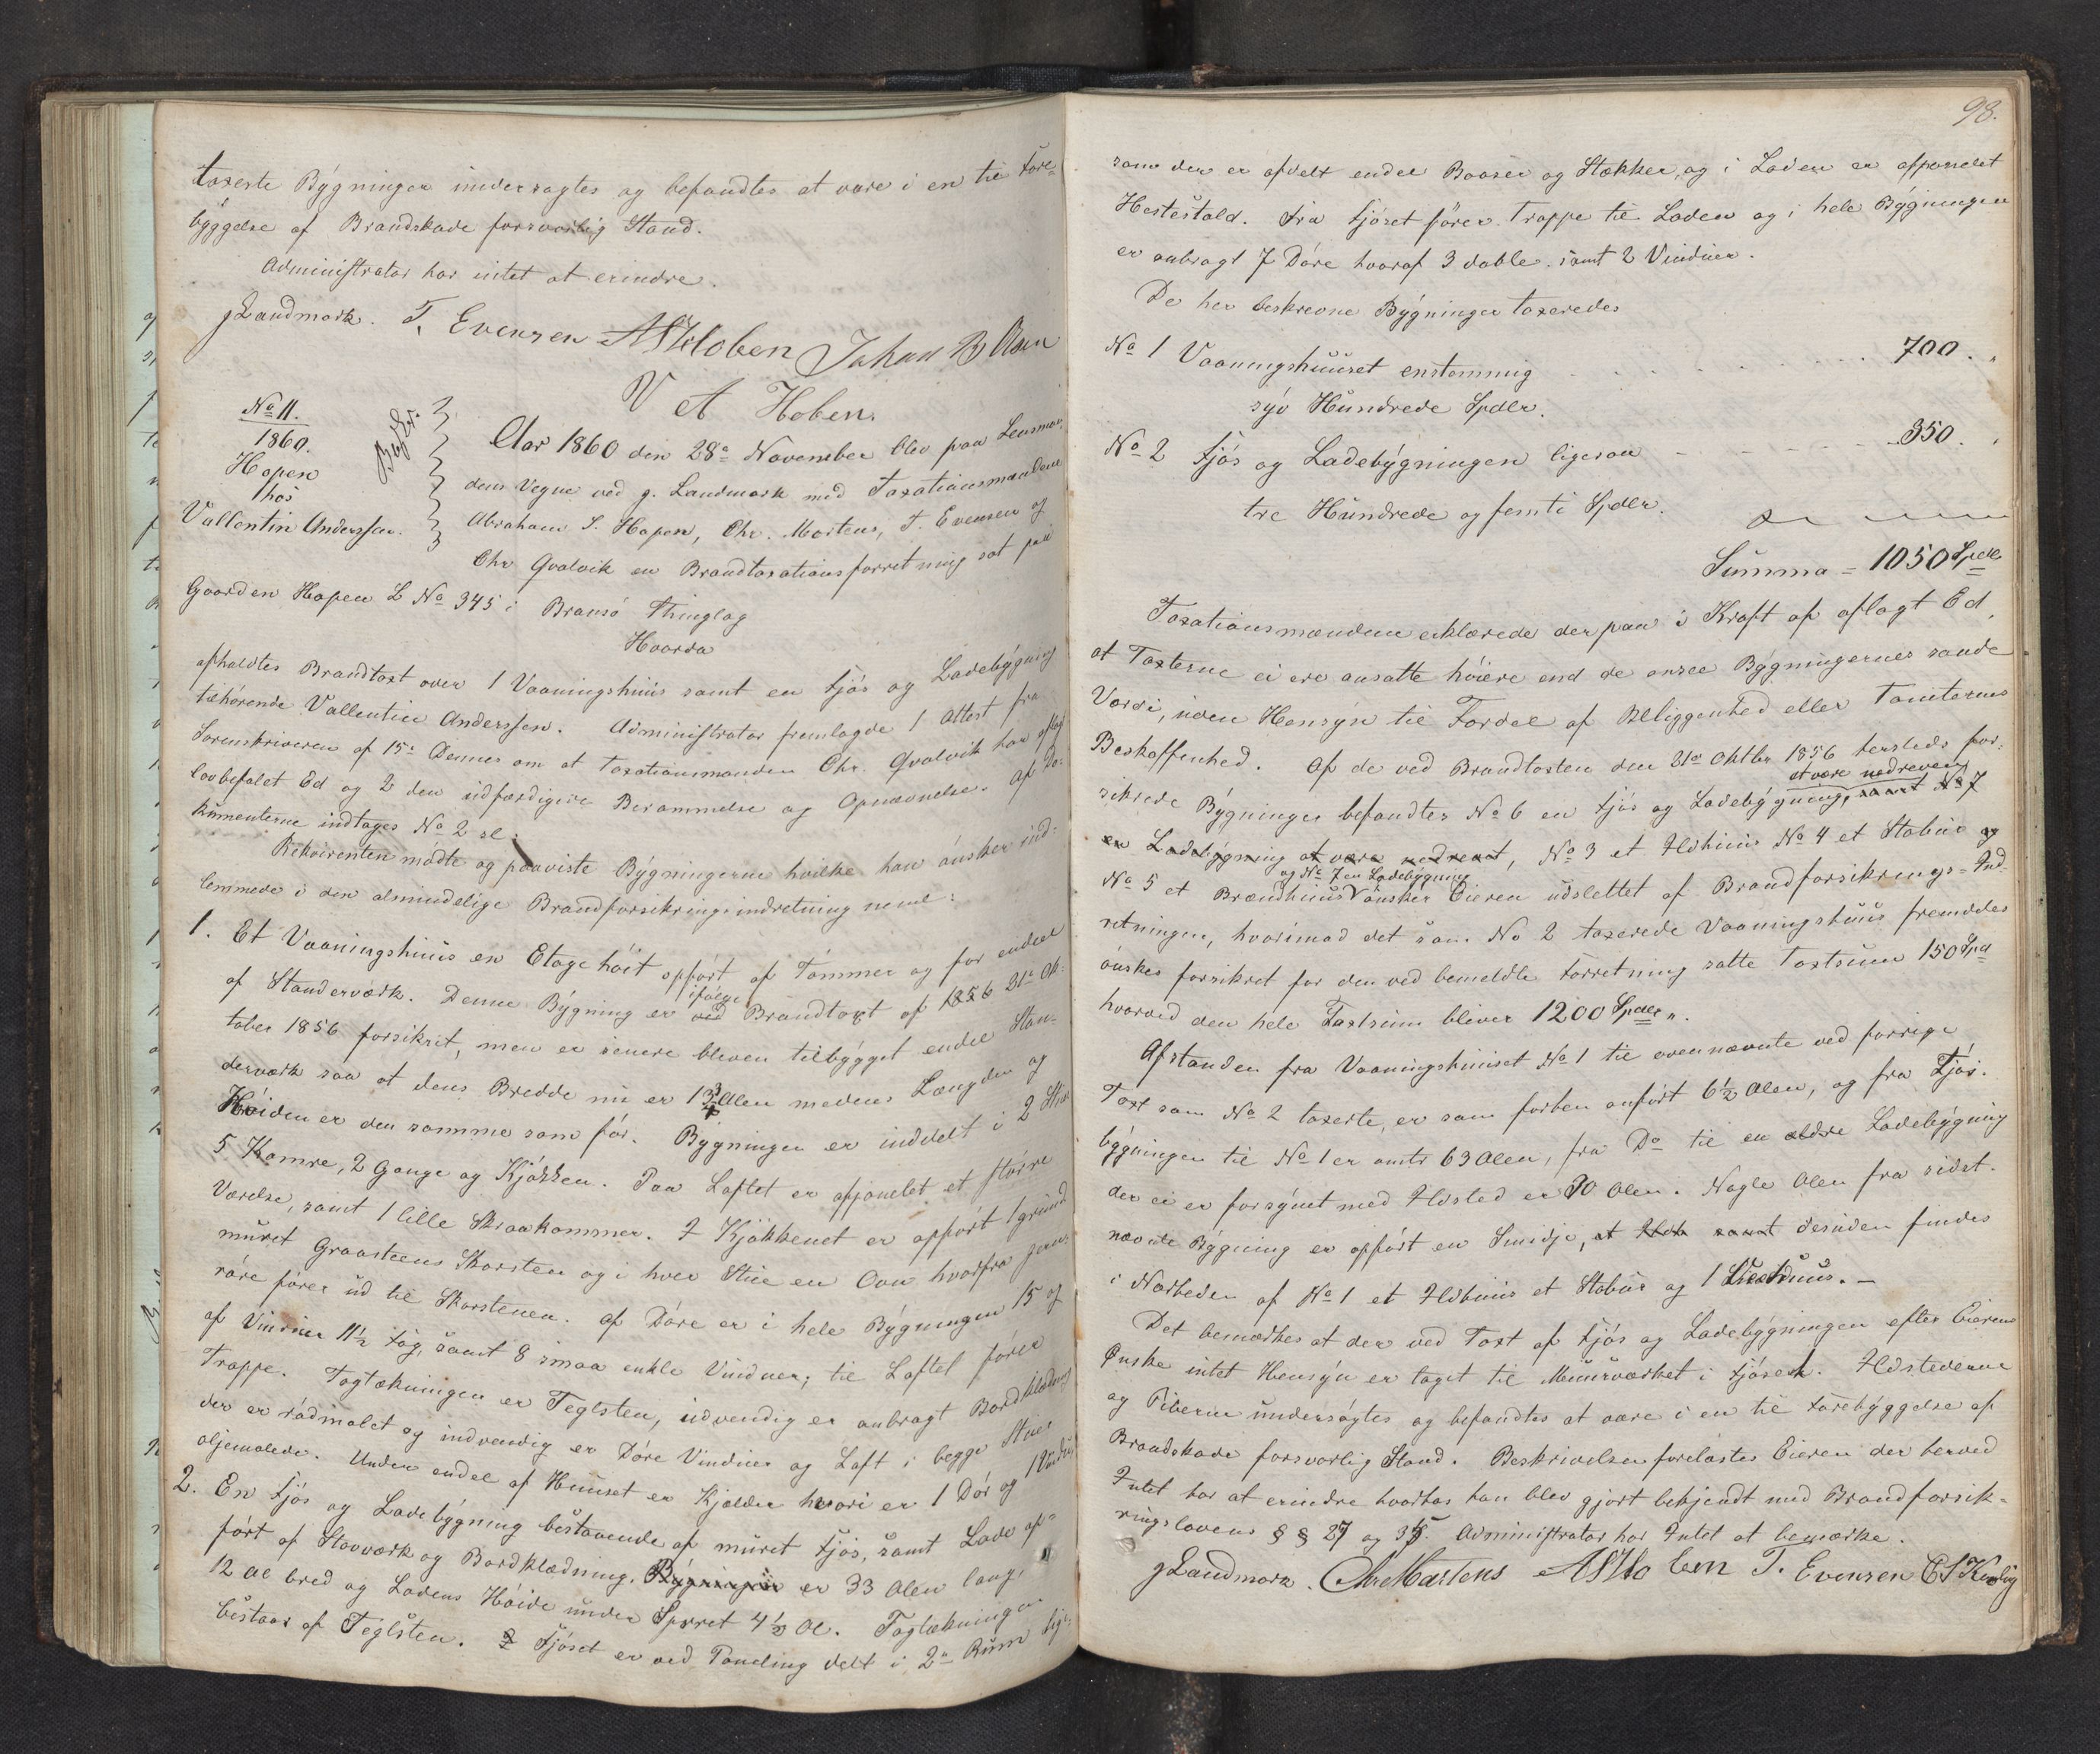 taxerte Bygninger undersøgtes og befandtes at være i en til Fore-
byggelse af Brandskade forsvarlig Stand.
Administrator har intet at erindre.
gLandmark. T. Evensen Johan B Olsen
V A Hoben.
No 11.
1860.
Hopen
hos
Vallentin Anderssen.
Aar 1860 den 28de November blev paa Lensman-
dens Vegne ved g. Landmark med Taxationsmændene
Abraham S. Hopen, Chr. Martens, T. Evensen og
Chr Qvalvik en Brandtaxationsforretning sat paa
Gaarden Hopen L No 345 i Bremsø Thinglag
Hvorda
afholdtes Brandtaxt over 1 Vaaningshuus samt en Fjøs og Ladebygning
tilhørende Vallentin Anderssen. Administrator fremlagde 1 Attest fra
Sorenskriveren af 15de Dennes om at Taxationsmanden Chr. Qvalvik har aflagt
lovbefalet Ed og 2 den udfærdigede Berammelse og Opnævnelse. Af Do-
kumenterne indtages No 2 sl:
Rekvirenten mødte og paaviste Bygningerne hvilke han ønsker ind-
lemmede i den almindelige Brandforsikringsindretning neml:
1. Et Vaaningshuus en Etage høit opført af Tømmer og for endeel
af Standerværk. Denne Bygning er ved ifølge Brandtaxt af 1856 21de Ok-
tober 1856 forsikret, men er senere bleven tilbygget endel Stan-
derværk saa at dens Bredde nu er 13 3/4 Alen medens Længden og
Høiden er den samme som før. Bygningen er inddelt i 2 Stuer
5 Kamre, 2 Gange og Kjøkken. Paa Loftet er afpanelet et større
Værelse, samt 1 lille Skraakammer. I Kjøkkenet er opført 1 grund
muret Graasteens Skorsten og i hver Stue en Ovn hvorfra Jern-
røre fører ud til Skorstenen. Af Døre er i hele Bygningen 15 og
af Vinduer 11 1/2 Fag, samt 8 smaa enkle Vinduer; til Loftet fører
Trappe. Tagtækningen er Teglsten, udvendig er anbragt Bordklædning
der er rødmalet og indvendig er Døre Vinduer og Loft i begge Stuer
oljemalede. Under endel af Huuset er Kjælder hvori er 1 Dør og 1 Vindue
2. En Fjøs og Ladebygning bestaaende af muret Fjøs, samt Lade op-
ført af Stavværk og Bordklædning. Bygningen er 33 Alen lang,
12 Al bred og Ladens Høide under Sperret 4 1/2 Al. Tagtækningen
bestaar af Teglsten. I Fjøset er ved Paneling delt i 2de Rum lige-
98.
som der er afdelt endel Baaser og Stækker, og i Laden er afpanelet
Hestestald. Fra Fjøset fører Trappe til Laden og i hele Bygningen
er anbragt 7 Døre hvoraf 3 doble. samt 2 Vinduer.
De her beskrevne Bygninger taxeredes
No 1 Vaaningshuuset enstemmig . . . . . . . 700. "
syv Hundrede Spdlr.
No 2 Fjøs og Ladebygningen ligesaa - - - - - 350. "
tre Hundrede og femti Spdlr.
Summa = 1050 Spdlr
Taxationsmændene erklærede derpaa i Kraft af aflagt Ed,
at Taxterne ei ere ansatte høiere end de ansee Bygningernes sande
Værdi, uden Hensyn til Fordel af Beliggenhed eller Tomternes
Beskaffenhed. Af de ved Brandtaxten den 21de Oktbr 1856 hersteds for-
sikrede Bygninger befandtes No 6 en Fjøs og Ladebygning, at være nedreven samt No 7
en Ladebygning at være nedrevet, No 3 et Ildhuus No 4 et Stabur og
No 5 et Brændhuus og No 7 en Ladebygning ønsker Eieren udslettet af Brandforsikrings-Ind-
retningen, hvorimod det som No 2 taxerede Vaaningshuus fremdeles
ønskes forsikret for den ved bemeldte Forretning satte Taxtsum 150 Spd
hvorved den hele Taxtsum bliver 1200 Spdlr".
Afstanden fra Vaaningshuuset No 1 til ovennævnte ved forrige
Taxt som No 2 taxerte, er som forhen anført 6 1/2 Alen, og fra Fjøs-
bygningen til No 1 er omtr 63 Alen, fra Do til en ældre Ladebygning
der ei er forsynet med Ildsted er 30 Alen. Nogle Alen fra sidst-
nævnte Bygning er opført en Smidje, et Ildh samt desuden findes
i Nærheden af No 1 et Ildhuus et Stabur og 1
Det bemærkes at der ved Taxt af Fjøs og Ladebygningen efter Eierens
Ønske intet Hensyn er taget til Muurværket i Fjøset. Ildstederne
og Piberne undersøgtes og befandtes at være i en til Forebyggelse af
Brandskade forsvarlig Stand. Beskrivelsen forelæstes Eieren der herved
Intet har at erindre hvorhos han blev gjort bekjendt med Brandforsik-
ringslovens § § 27 og 35. Administrator har Intet at bemærke.
gLandmark. Chr Martens T. Evensen